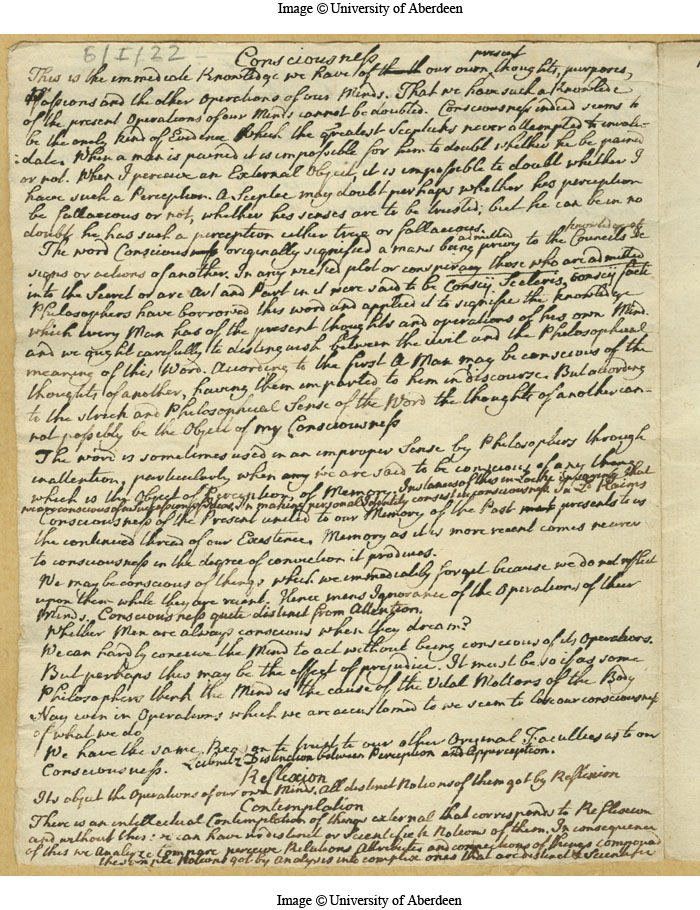 Image © University of Aberdeen
6/I/22
Consciousness
This is the immediate Knowledge we have of our own present thoughts, purposes,
Passions and the other Operations of our Minds. That we have such a Knowledge
of the present Operations of our Minds cannot be doubted. Consciousness indeed seems to
be the onely kind of Evidence which the greatest Scepticks never attempted to invali-
date. When a man is pained it is impossible for him to doubt whether he be pained
or not. When I perceive an External Object, it is impossible to doubt whether I
have such a Perception. A Sceptic may doubt perhaps whether his perception
be fallacious or not, whether his senses are to be trusted; but he can be in no
doubt he has such a perception either true or fallacious.
The word Conscious originally signified a mans being admitted privy to the Councils
signs or actions of another. In any wicked plot or conspiracy those who are admitted
into the Secret or are Art and Part in it were said to be Conscij Sceleris, conscij facti
Philosophers have borrowed this word and applied it to signifie the knowledge
which every Man has of the present thoughts and operations of his own Mind.
and we ought carefully to distinguish between the civil and the Philosophical
meaning of this Word. According to the first A Man may be conscious of the
thoughts of another, having them imparted to him in discourse. But according
to the strict and Philosophical Sense of the Word the thoughts of another can-
not possibly be the Object of my Consciousness
The word is sometimes used in an improper Sense by Philosophers through
inattention, particularly when we are said to be conscious of any thing
which is the Object of Perception, of Memory. Instances of this in Locke
In making personal Identity consist in consciousness In Ld Kaims
Consciousness of the Present united to our Memory of the Past presents to us
the continued thread of our Existence. Memory as it is more recent comes nearer
to consciousness in the degree of conviction it produces.
We may be conscious of things which we immediatly forget because we do not reflect
upon them while they are recent. Hence mens Ignorance of the Operations of their
Minds. Consciousness quite distinct from Attention.
Whether Men are always conscious when they dream?
We can hardly conceive the Mind to act without being conscious of its Operations.
But perhaps this may be the effect of prejudice. It must be so if as some
Philosophers think the Mind is the cause of the Vital Motions of the Body
Nay even in Operations which we are accustomed to we seem to lose our consciousness
of what we do
We have the same Reason to trust to our other Original Faculties as to our
Consciousness. Leibnitz Distinction between Perception and Apperception.
Reflexion
Its object the Operations of our own Minds. All distinct Notions of them got by Reflexion
Contemplation
There is an intellectual Contemplation of things external that corresponds to Reflexion
and without this we can have no distinct or Scientifick Notions of them. In consequence
of this we Analyze Compare perceive Relations Attributes and connections of things compound
the simple Notions got by Analysis into complex ones that are distinct & Scientific
Image © University of Aberdeen